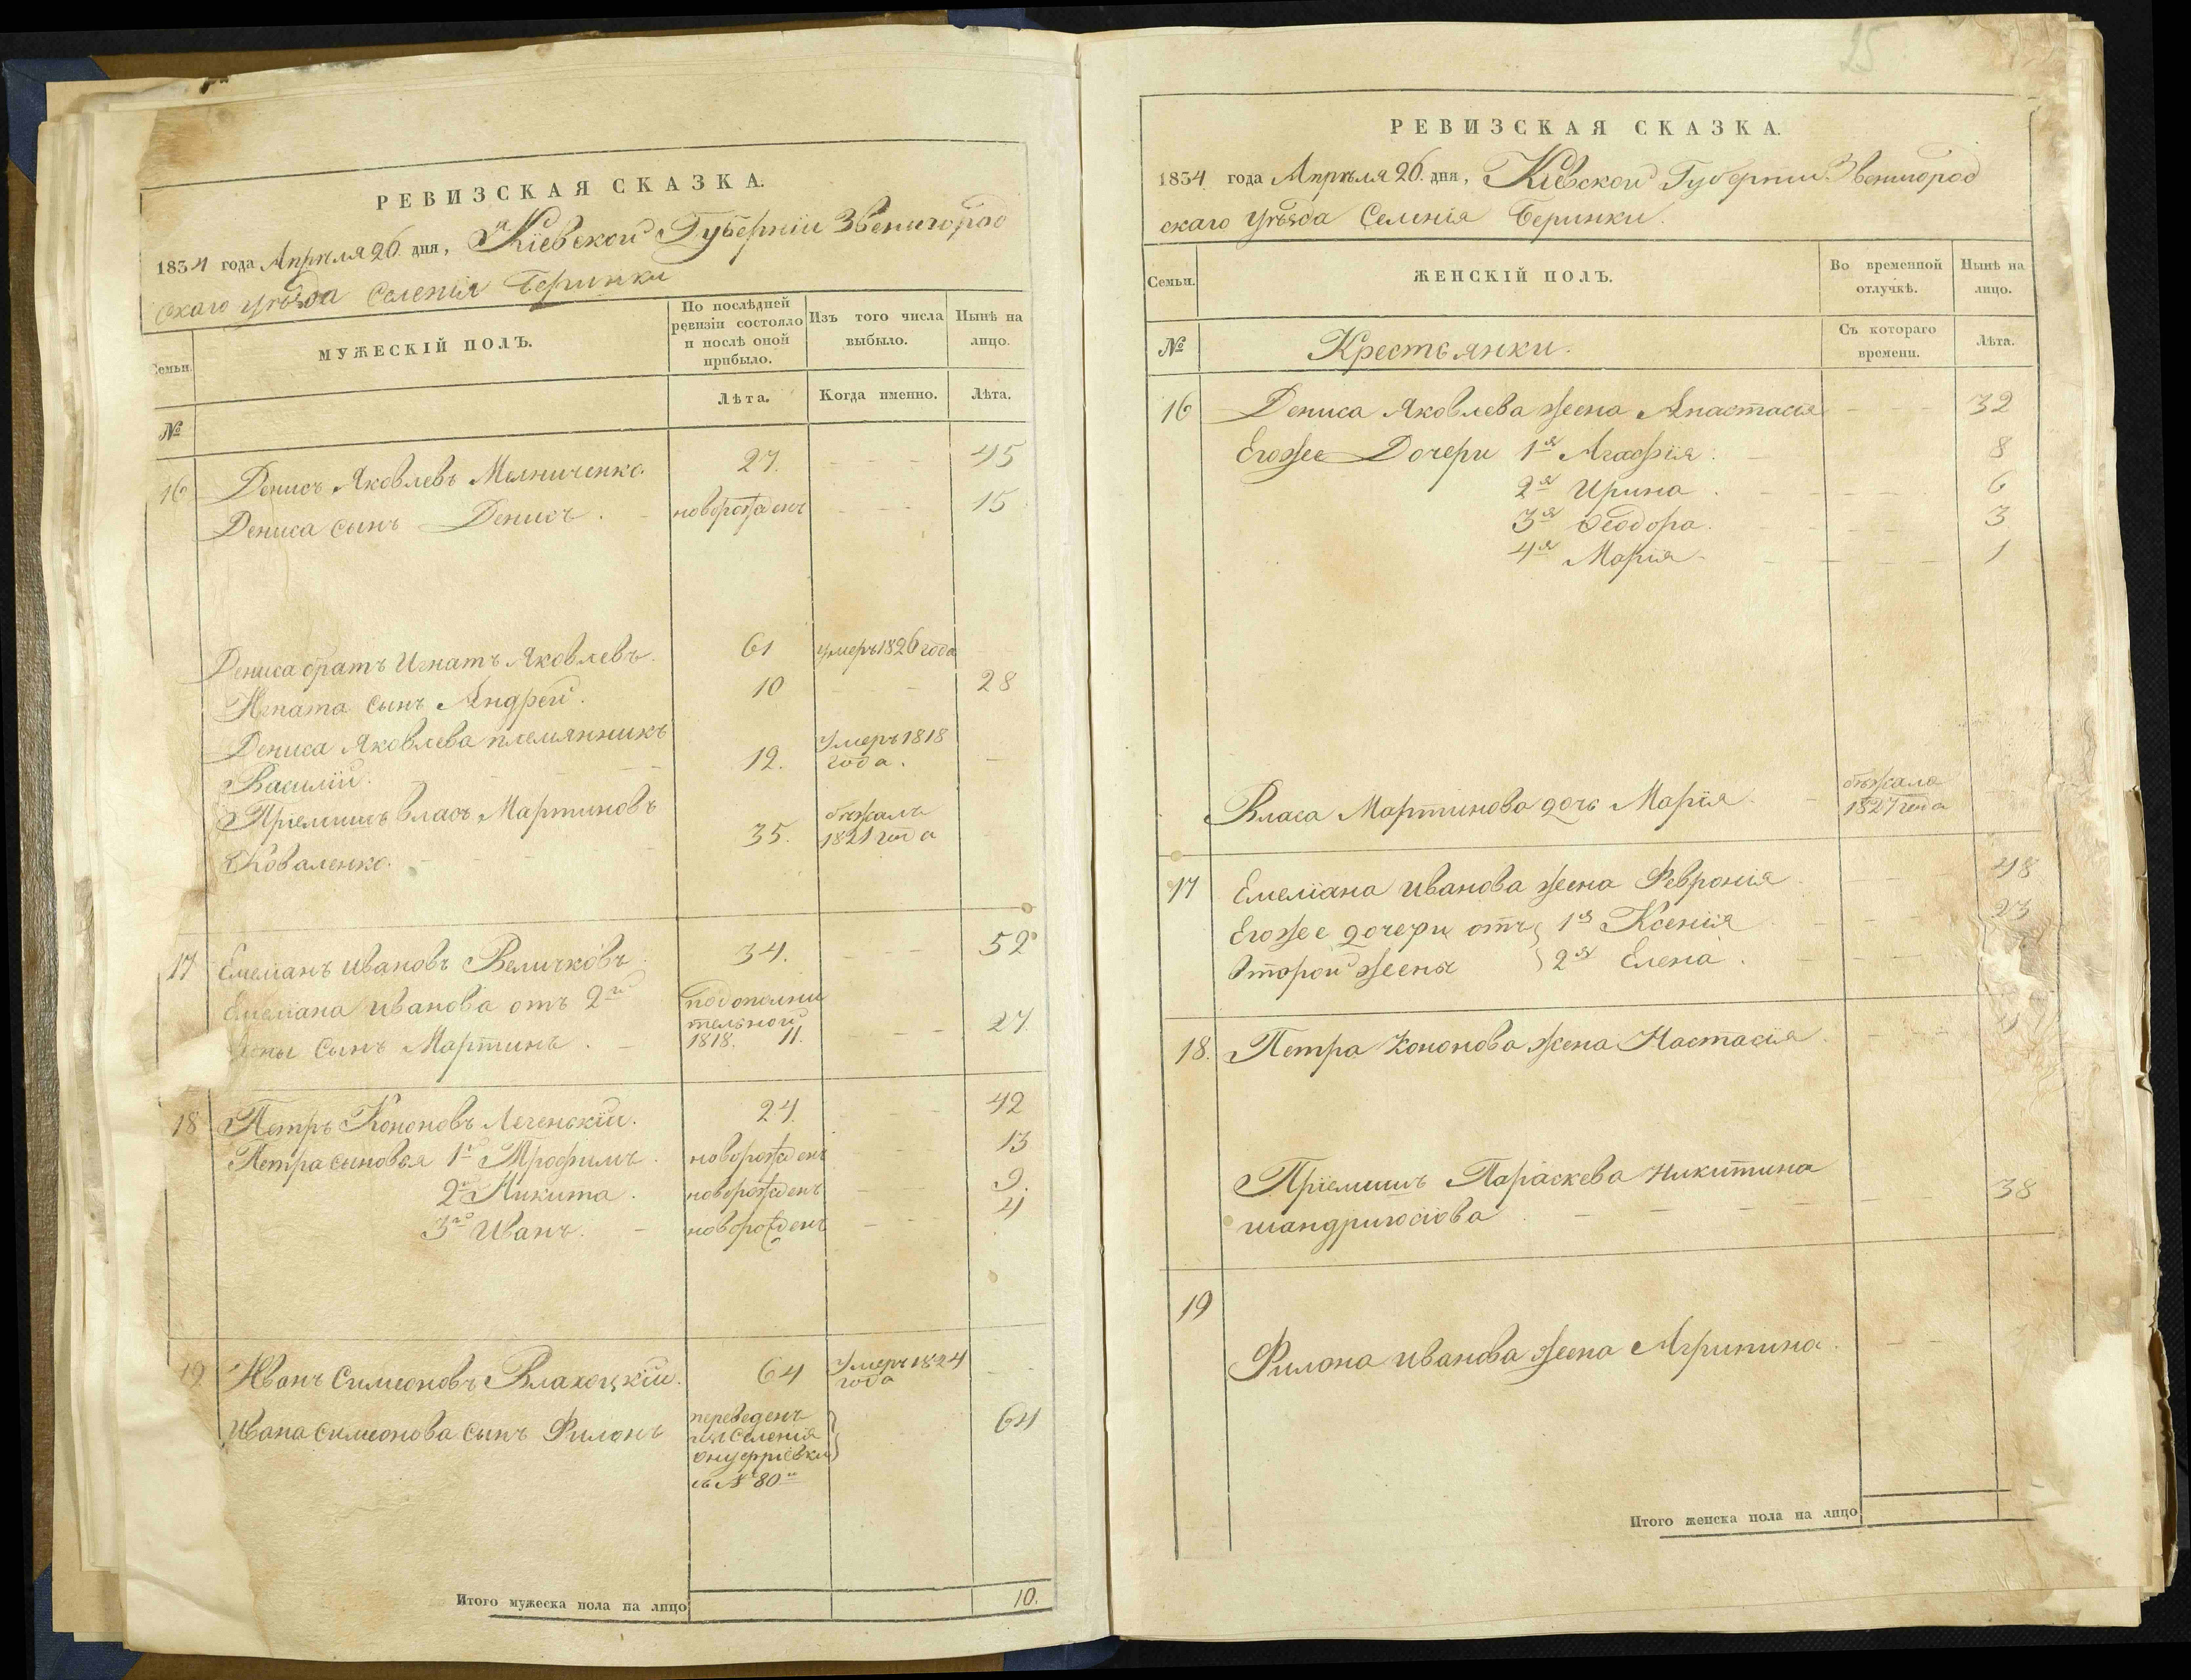 РЕВИЗСКАЯ СКАЗКА.
1834 года Апрѣля 26. дня, Кіевской Губерніи Звенигород
скаго уѣзда Селенія Беринки
Семьи.
МУЖЕСКІЙ ПОЛЪ.
По послѣдней ревизіи состояло и послѣ оной прибыло.
Изъ того числа выбыло.
Нынѣ на лицо.
№
Лѣта.
Когда именно.
Лѣта.
16 Денисъ Яковлевъ Мелниченко 27. - - - 45
Дениса сынъ Денисъ. новорожденъ - - - 15
Дениса братъ Игнатъ Яковлевъ. 61 умеръ 1826 года
Игната сынъ Андрей. 10 - - - 28
Дениса Яковлева племянникъ
Василій. 12. Умеръ 1818 года. -
Пріемышъ Власъ Мартиновъ
Коваленко. 35. бѣжалъ 1821 года
17 Емеліанъ Ивановъ Величковъ 34. - - 52
Емеліана Иванова отъ 2й
жены сынъ Мартинъ. по дополни тельной 1818. 11. - - 27.
18 Петръ Кононовъ Легенькій. 24. - - 42
Петра сыновья 1й Трофимъ. новорожденъ - - 13
2й Никита. новорожденъ - - 9.
3й Иванъ. новорожденъ - - 4
19 Иванъ Симеоновъ Влахоцкій. 64 Умеръ 1824 года -
Ивана Симеонова сынъ Филонъ переведенъ изъ Селенія Онуфріевки съ № 80 64
Итого мужеска пола на лицо 10.
25
РЕВИЗСКАЯ СКАЗКА.
1834 года Апрѣля 26. дня, Кіевской Губерніи Звенигород
скаго уѣзда Селенія Беринки.
Семьи.
ЖЕНСКІЙ ПОЛЪ.
Во временной отлучкѣ.
Нынѣ на лицо.
№
Крестьянки.
Съ котораго времени.
Лѣта.
16 Дениса Яковлева жена Анастасія - - - 32
Егожее Дочери 1я Агафія. 8
2я Ирина. - - - 6
3я Феодора. - - - 3
4я Марія. - - - 1
Власа Мартинова дочь Марія - бѣжала 1827 года
17 Емеліана Иванова жена Февронія - - 48
Егожее дочери отъ 1я Ксенія - - - 23
Второй жены 2я Елена. - - -
18. Петра Кононова жена Настасія. - - -
Пріемишъ Параскева Никитина
- - 38
19
Филона Иванова жена Агрипина. - -
Итого женска пола на лицо